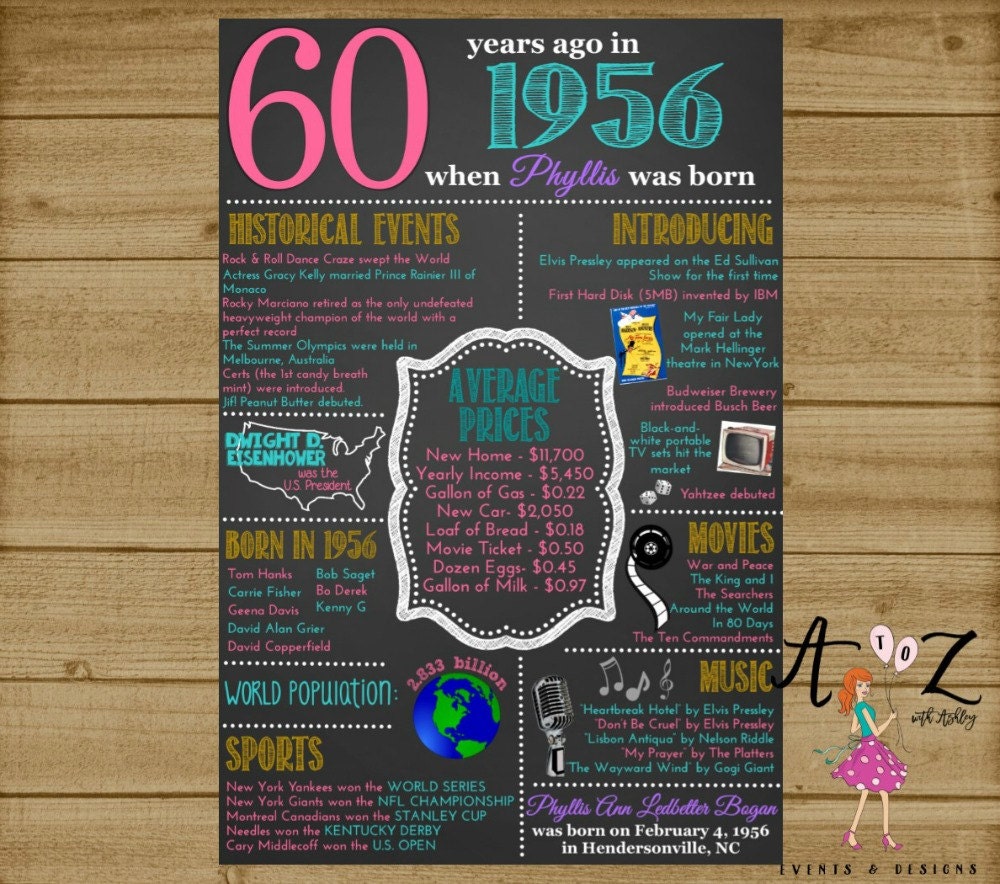 60
years ago in
1956
when Phyllis was born
HISTORICAL EVENTS
Rock & Roll Dance Craze swept the World
Actress Gracy Kelly married Prince Rainier III of
Monaco
Rocky Marciano retired as the only undefeated
heavyweight champion of the world with a
perfect record
The Summer Olympics were held in
Melbourne, Australia
Certs (the 1st candy breath
mint) were introduced.
Jif! Peanut Butter debuted.
INTRODUCING
Elvis Pressley appeared on the Ed Sullivan
Show for the first time
First Hard Disk (5MB) invented by IBM
My Fair Lady
opened at the
Mark Hellinger
theatre in NewYork
Budweiser Brewery
introduced Busch Beer
Black-and-
white portable
TV sets hit the
market
Yahtzee debuted
AVERAGE
PRICES
New Home - $11,700
Yearly Income - $5,450
Gallon of Gas - $0.22
New Car- $2,050
Loaf of Bread - $0.18
Movie Ticket - $0.50
Dozen Eggs- $0.45
Gallon of Milk - $0.97
DWIGHT D.
EISENHOWER
was the
U.S. President
BORN IN 1956
Tom Hanks
Carrie Fisher
Geena Davis
David Alan Grier
David Copperfield
Bob Saget
Bo Derek
Kenny G
MOVIES
War and Peace
The King and I
The Searchers
Around the World
In 80 Days
The Ten Commandments
WORLD POPULATION:
2.833 billion
MUSIC
"Heartbreak Hotel" by Elvis Pressley
"Don't Be Cruel" by Elvis Pressley
"Lisbon Antiqua" by Nelson Riddle
"My Prayer" by The Platters
"The Wayward Wind" by Gogi Giant
SPORTS
New York Yankees won the WORLD SERIES
New York Giants won the NFL CHAMPIONSHIP
Montreal Canadians won the STANLEY CUP
Needles won the KENTUCKY DERBY
Cary Middlecoff won the U.S. OPEN
Phyllis Ann Ledbetter Bogan
was born on February 4, 1956
in Hendersonville, NC
A TO Z
with Ashley
EVENTS & DESIGNS